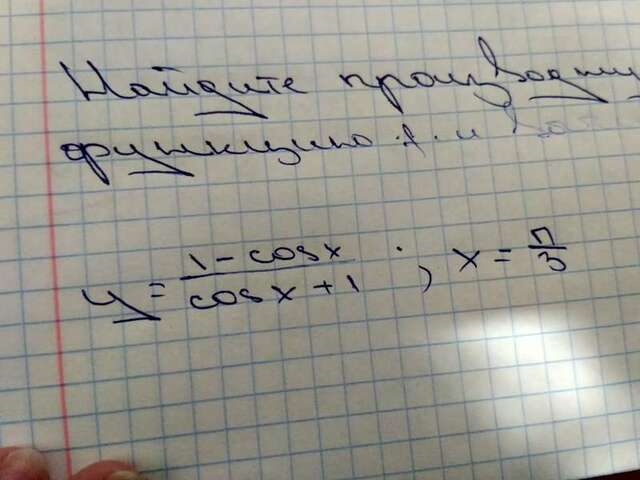 Найдите производну
функцию f и
y = \frac{1 - cosx}{cosx + 1} ; x = \frac{π}{3}